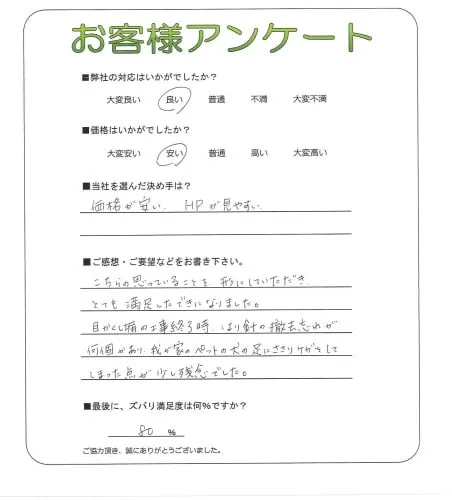 お客様アンケート
■弊社の対応はいかがでしたか?
大変良い 良い 普通 不満 大変不満
■価格はいかがでしたか?
大変安い 安い 普通 高い 大変高い
■当社を選んだ決め手は?
価格が安い、HPが見やすい
■ご感想・ご要望などをお書き下さい。
こちらの思っていることを、形にしていただき、
とても満足したできになりました。
目かくし塀の工事終了時、はり針の撤去忘れが
何個かあり、我が家のペットの犬の足にささりケガをして
しまった点が少し残念でした。
■最後に、ズバリ満足度は何%ですか?
80 %
ご協力頂き、誠にありがとうございました。